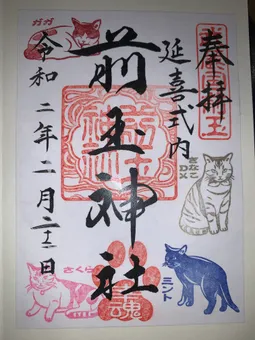 奉拝
延喜式内
前玉神社
令和二年二月二十二日
ガガ
きなこ
DX
さくら
ミント
魂